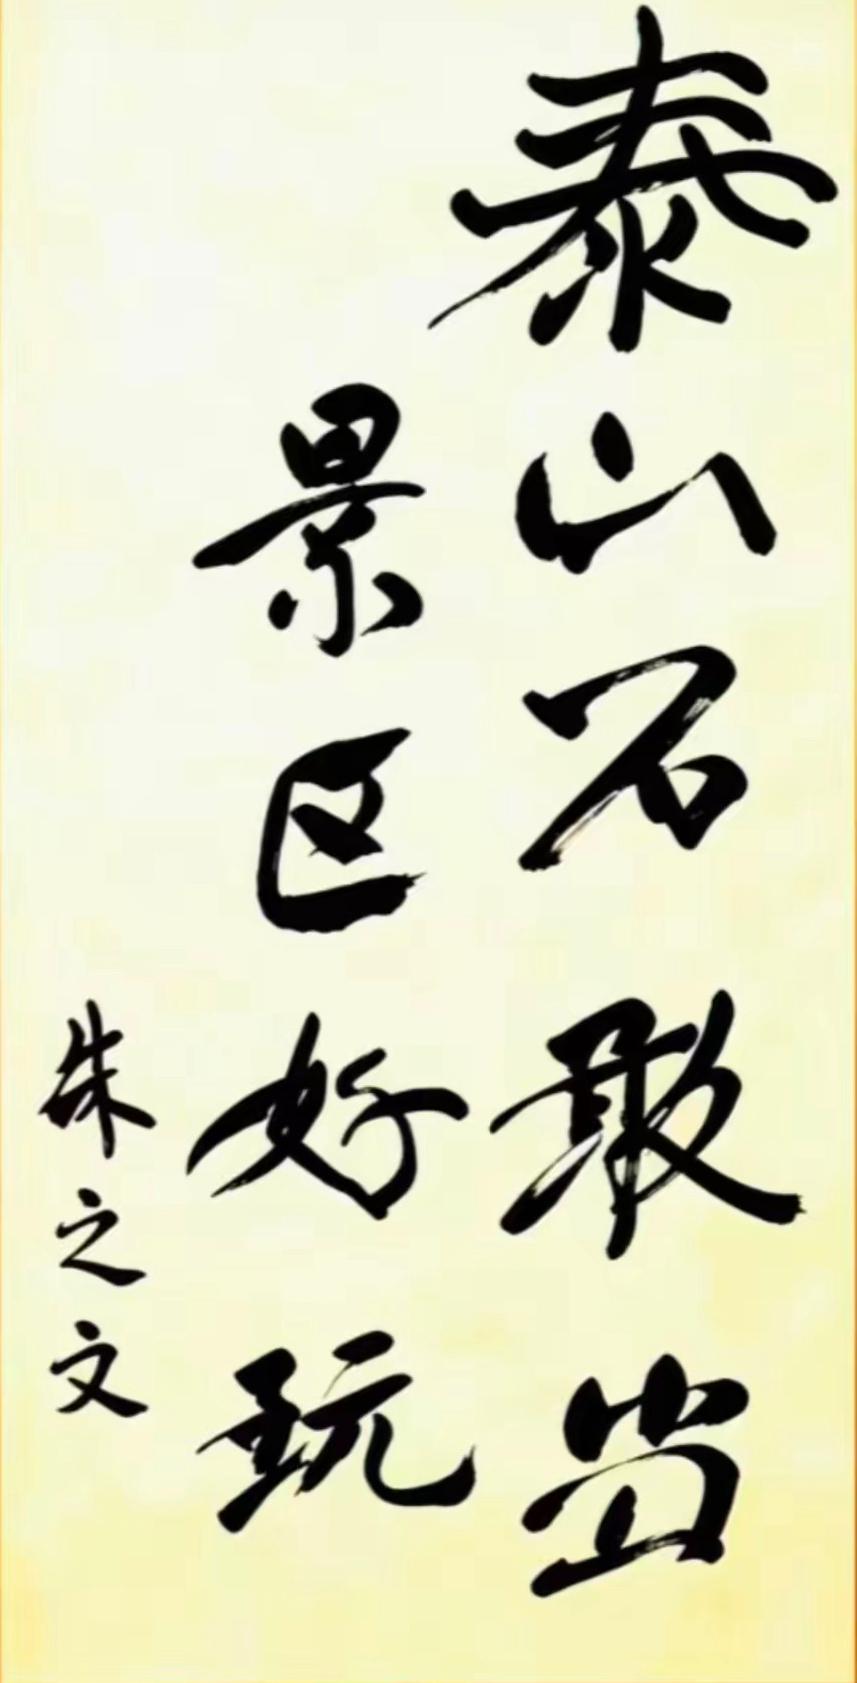 泰山石敢当
景区好玩
朱之文